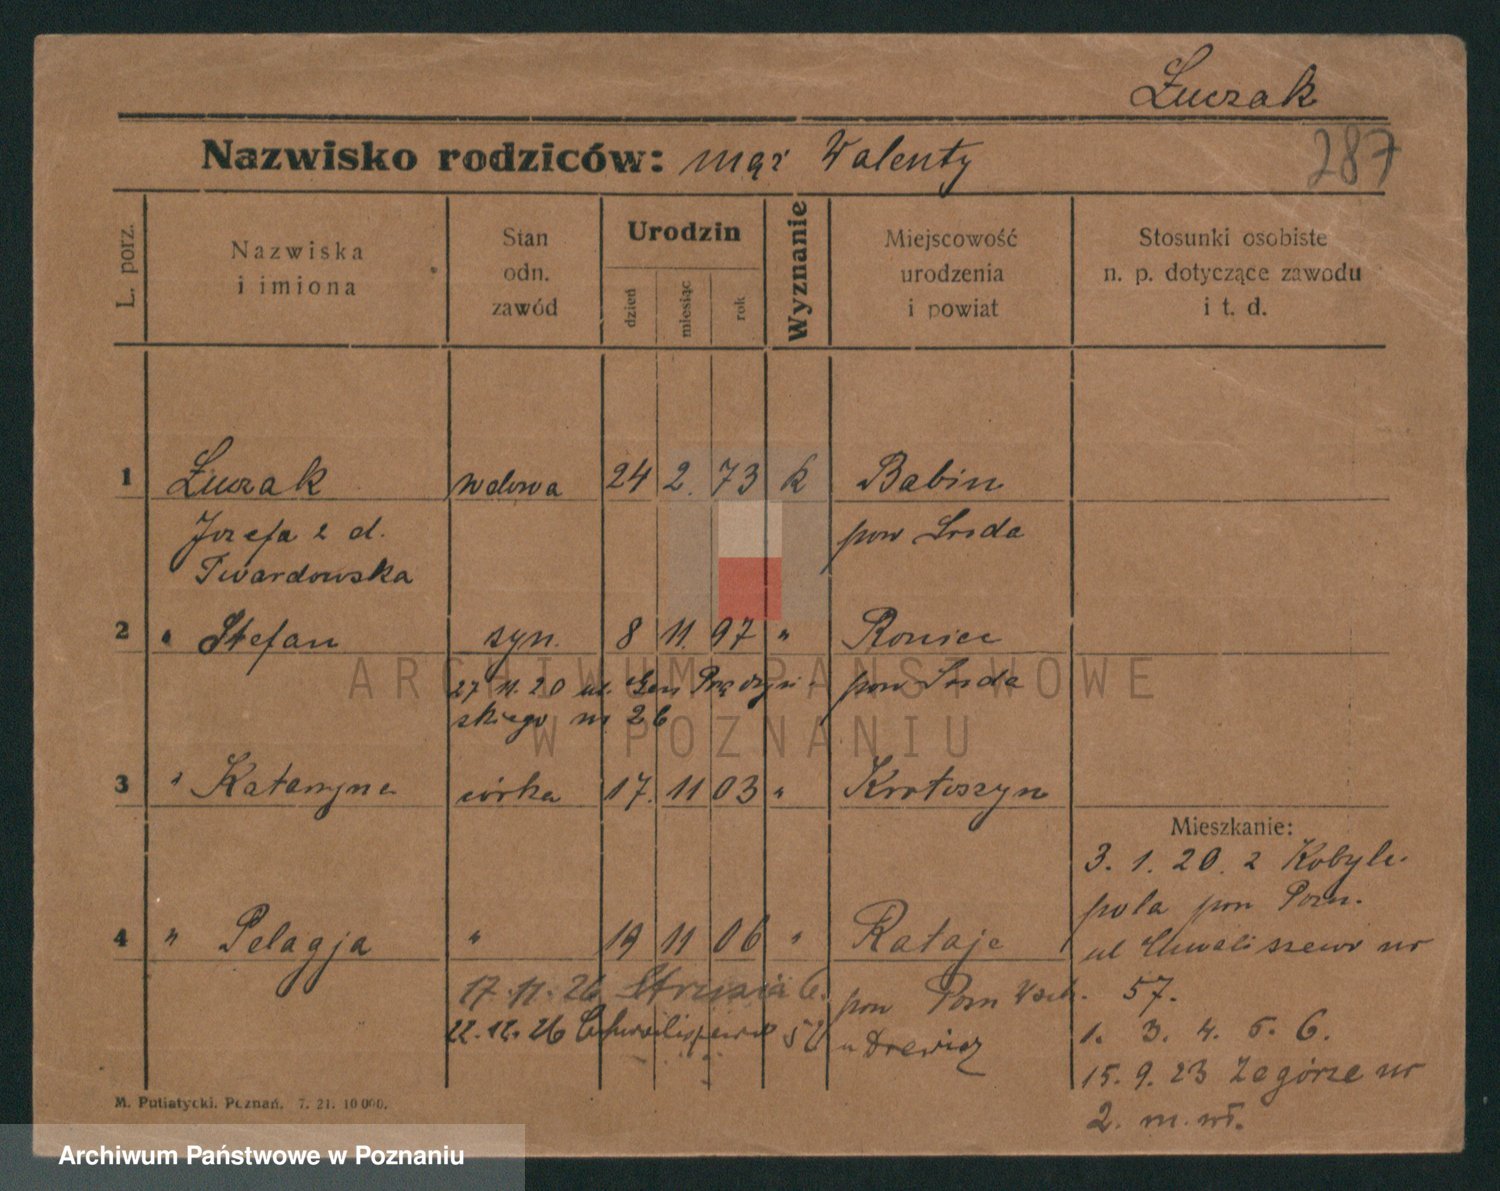 Łuczak
287
Nazwisko rodziców: mąż Walenty
L. porz.
Nazwiska
i imiona
Stan
odn.
zawód
Urodzin
dzień
miesiąc
rok
Wyznanie
Miejscowość
urodzenia
i powiat
Stosunki osobiste
n. p. dotyczące zawodu
i t. d.
1 Łuczak wdowa 24 2. 73 k Babin
Józefa z d. pow Środa
Twardowska
2 " Stefan syn. 8 11. 97 "
27 11. 20 ul. Gen Prądzyń- pow Środa
skiego nr 26
3 " Katarzyna córka 17. 11 03 " Krotoszyn
Mieszkanie:
3. 1. 20. z Kobyle-
pola pow Pozn.
4 " Pelagja " 19 11 06 " Rataje
ul Chwaliszewo nr
57.
17. 11. 26 6. pow Pozn Wsch.
22. 12. 26 Chwaliszewo 57
1. 3. 4. 5. 6.
15. 9. 23 Zagórze nr
2. m. wł.
M. Putiatycki. Poznań. 7. 21. 10 000.
ARCHIWUM PAŃSTWOWE
W POZNANIU
Archiwum Państwowe w Poznaniu